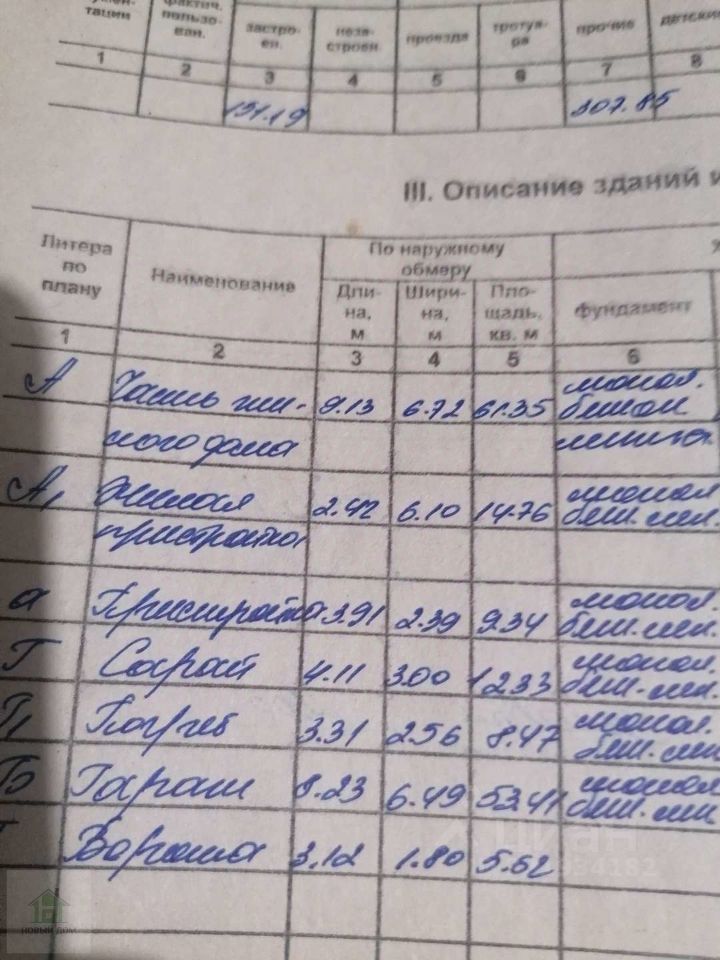 тации
фактич.
пользо-
ван.
застро-
ен.
неза-
строен
проезда
тротуа-
ра
прочие
детски
1 2 3 4 5 6 7 8
151.19 307.85
III. Описание зданий и
Литера
по
плану
Наименование
По наружному
обмеру
Дли-
на,
м
Шири-
на,
м
Пло-
щадь,
кв. м
фундамент
1 2 3 4 5 6
А Часть жи- 9.13 6.72 61.35 монол.
бетон
лого дома
А1 Жилая 2.42 6.10 14.76 монол
пристройка бет. лен.
а Пристройка 3.91 2.39 9.34 монол.
бет. лен.
Г Сарай 4.11 3.00 12.33 монол.
бет. лен.
Г1 Погреб 3.31 2.56 8.47 монол.
бет. лен
Гараж 8.23 6.49 53.41 монол
бет. лен
Ворота 3.12 1.80 5.62
циан
НОВЫЙ ДОМ